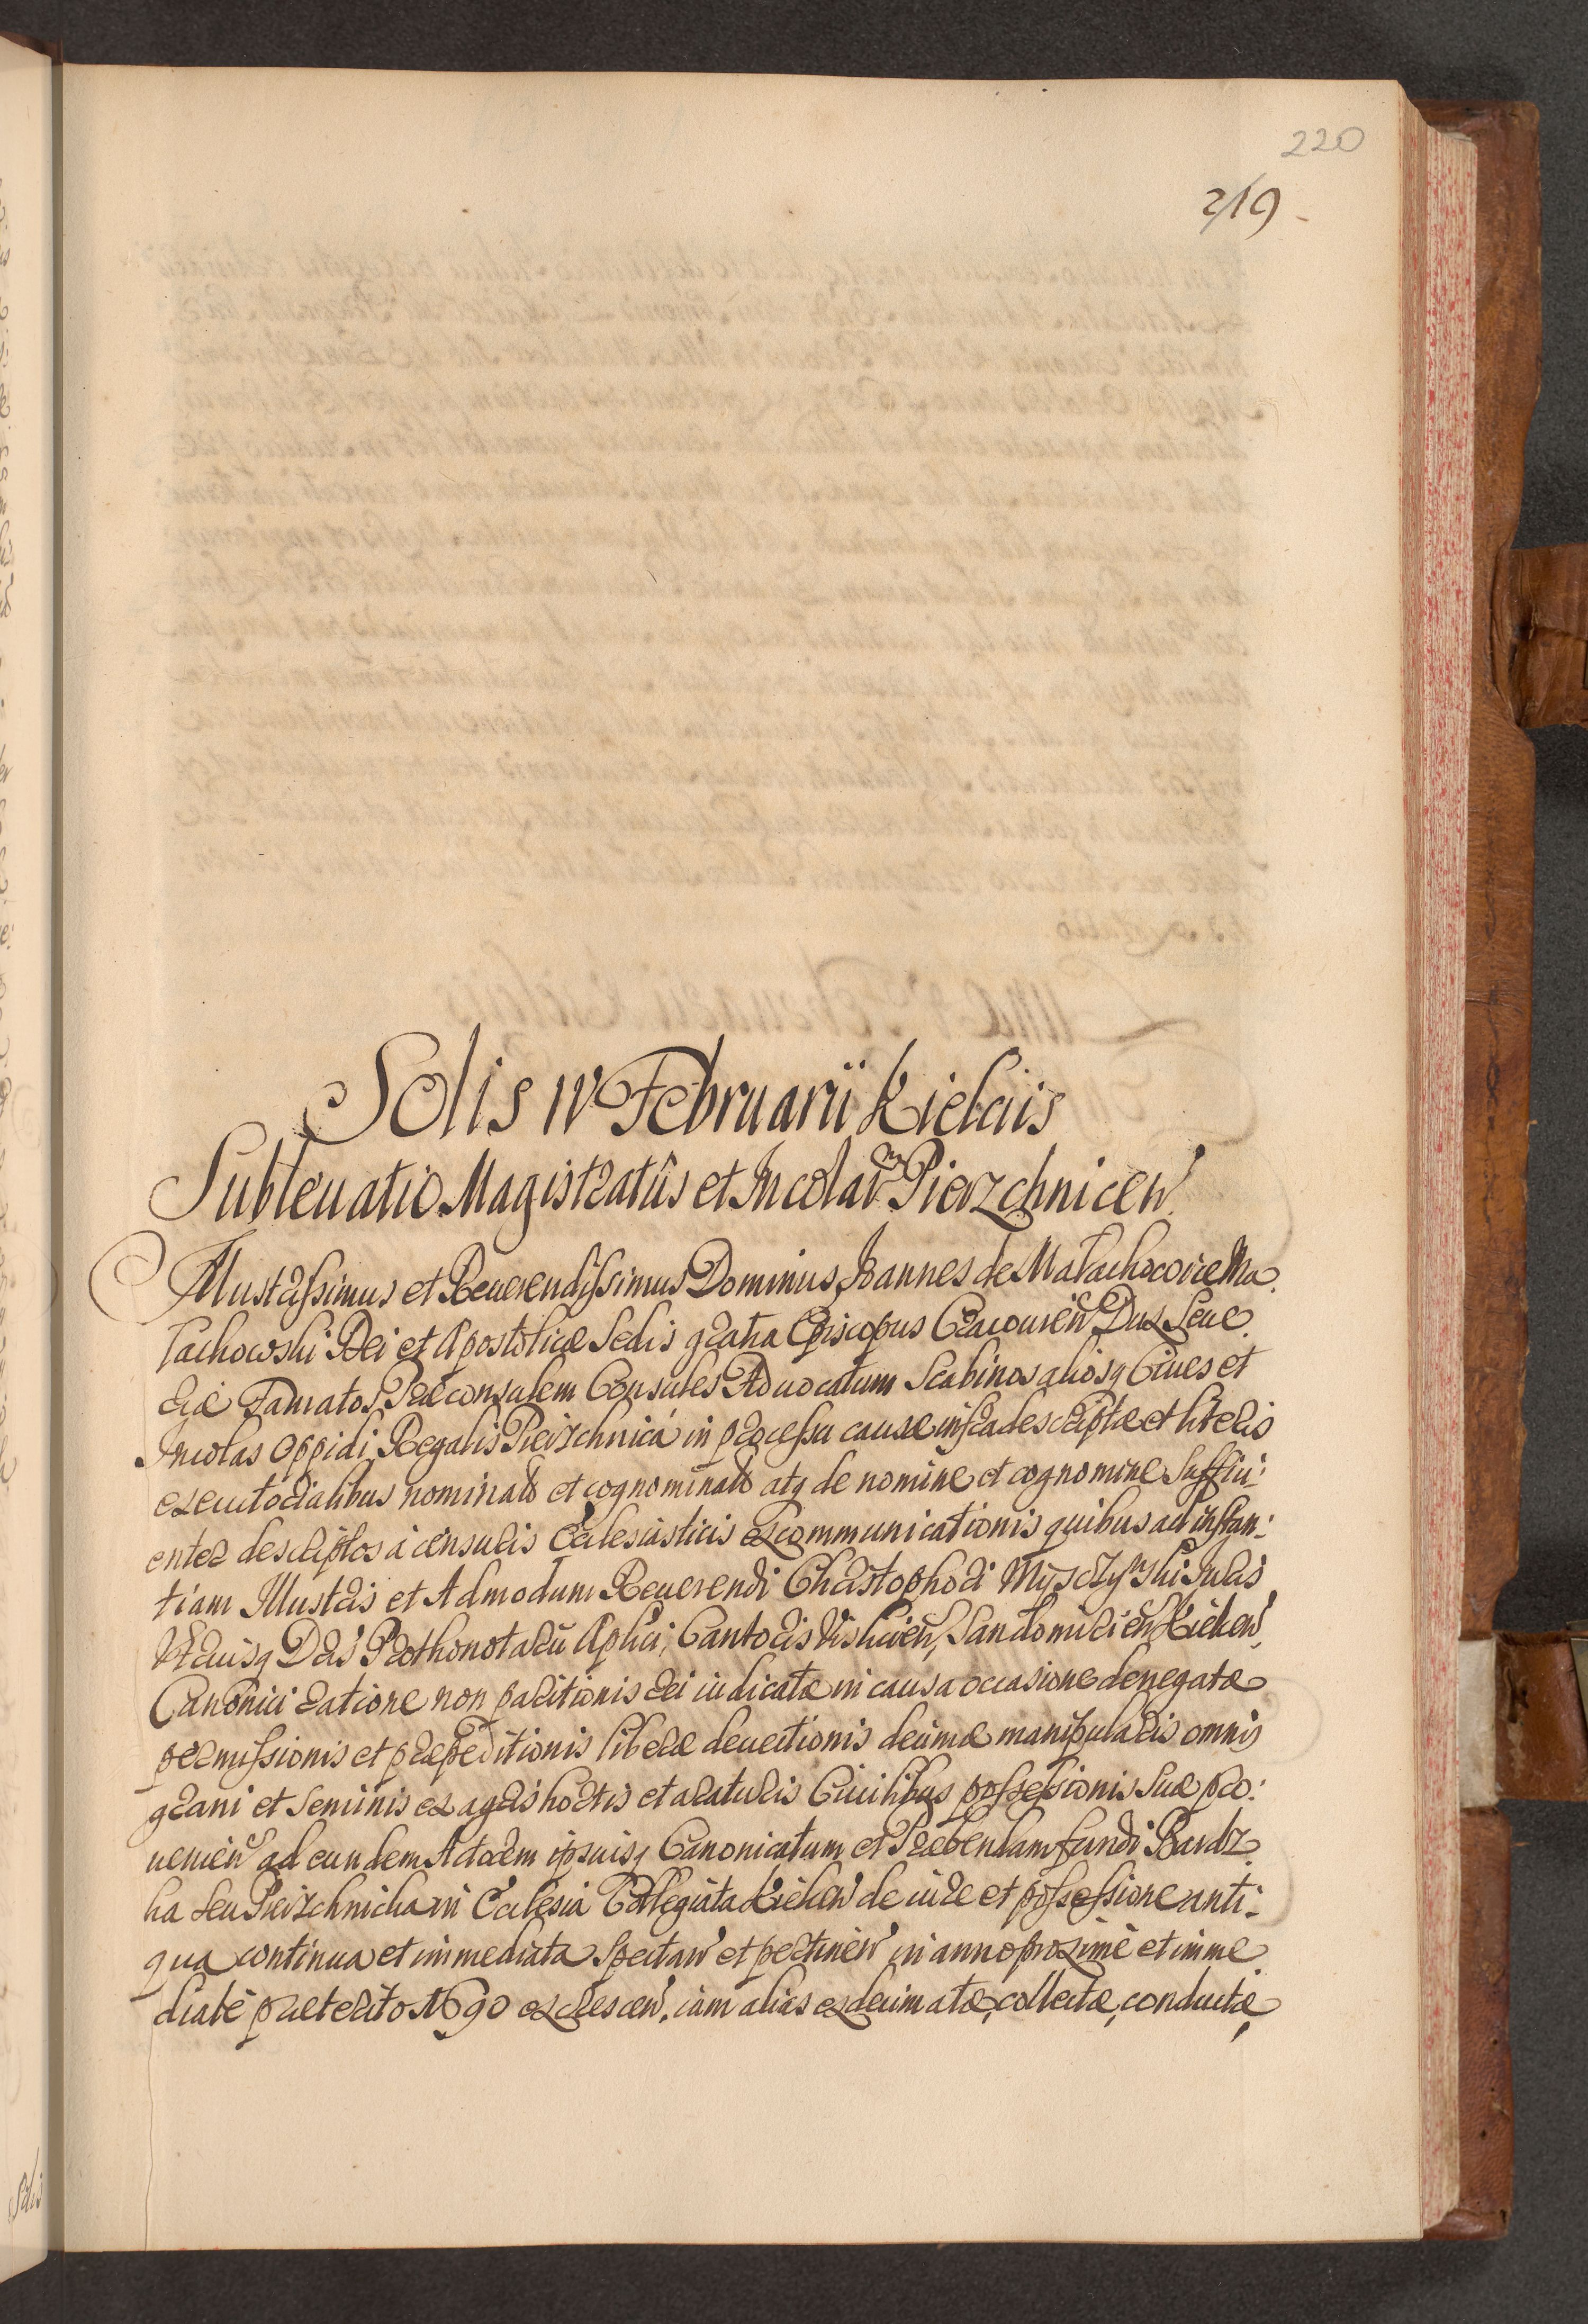 220
219
Solis IV Februarii Kielciis
Subleuatio Magistratûs et Incolarm Pierzchnicen
Illustrissimus et Reuerendissimus Dominus Joannes de Małachowice Ma
łachowski Dei et Apostolicæ Sedis gratia Episcopus Cracouien Dux Seue
riæ Famatos Præconsulem Consules Aduocatum Scabinos aliosq Ciues et
Incolas Oppidi Regalis Pierzchnica in processu causæ infradescriptæ et literis
executorialibus nominatos et cognominatos atq de nomine et cognomine suffici:
enter descriptos à censuris Ecclesiasticis excommunicationis quibus ad instan:
tiam Illustris et Admodum Reuerendi Christophori Juris
Vtriusq Dris Prothonotarii Aplici, Cantoris Vislicien, Sandomirien Kielcen
Canonici ratione non paritionis rei iudicatæ in causa occasione denegatæ
permissionis et præpeditionis liberæ deuectionis decimæ manipularis omnis
grani et seminis ex agris hortis et araturis Ciuilibus possessionis suæ pro:
uenien ad eundem Actorem ipsiusq Canonicatum et Præbendam fundi Bardz
ka seu Pierzchnicka in Ecclesia Collegiata Kielcen de iure et possessione anti:
qua continua et immediata spectan et pertinen in anno proximè et imme
diatè præterito 1690 excrescen, iam alias exdecimatæ, collectæ, conductæ,
Solis